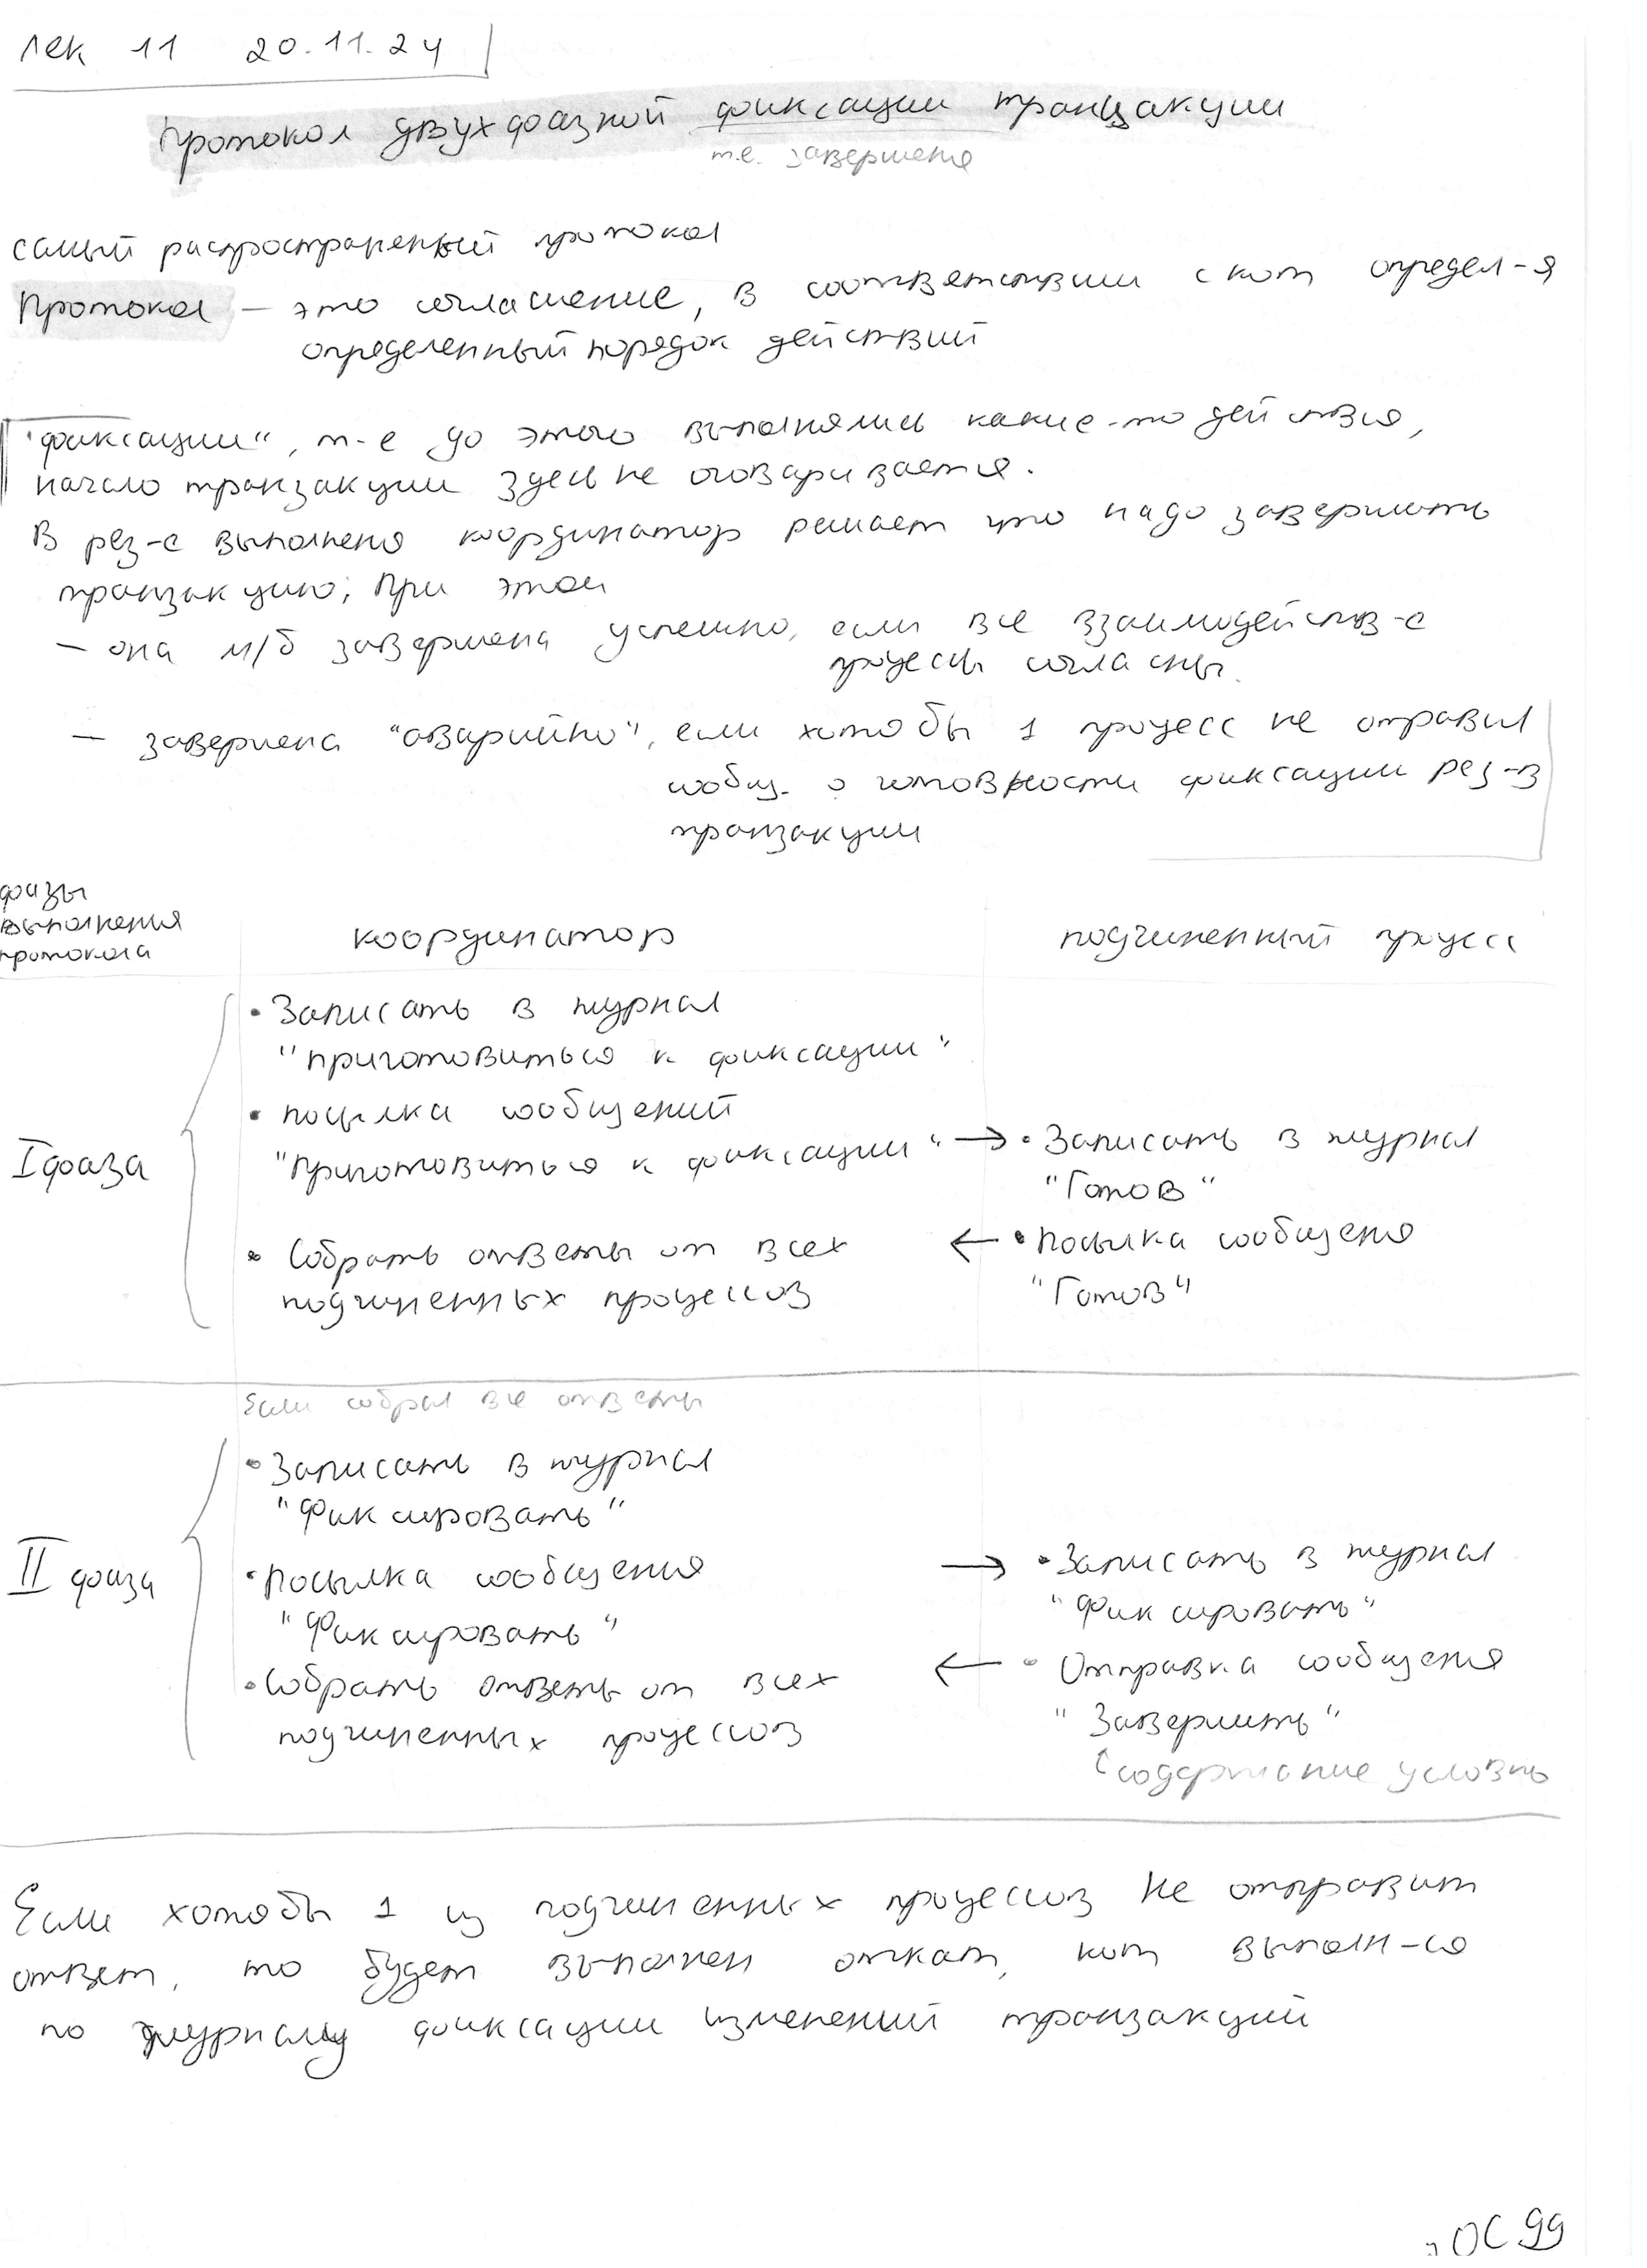 лек 11 20.11.24
Протокол двухфазной фиксации транзакции
т.е. завершения
самый распространенный протокол
Протокол – это соглашение, в соответствии с кот определ-я
определенный порядок действий
"фиксации", т-е до этого выполнялись какие-то действия,
начало транзакции здесь не оговаривается.
В рез-е выполнения координатор решает что надо завершить
транзакцию; При этом
– она м/б завершена успешно, если все взаимодейств-е
процессы согласны.
– завершена "аварийно", если хотя бы 1 процесс не отравил
сообщ. о готовности фиксации рез-в
транзакции
фазы
выполнения
протокола
координатор
подчиненный процесс
• Записать в журнал
"приготовиться к фиксации"
• посылка сообщений
"Приготовиться к фиксации" → • Записать в журнал
I фаза
"Готов"
• Собрать ответы от всех ← • посылка сообщения
подчиненных процессов "Готов"
Если собрал все ответы
• Записать в журнал
"Фиксировать"
II фаза
• Посылка сообщения → • Записать в журнал
"Фиксировать" "Фиксировать"
• Собрать ответы от всех ← • Отправка сообщения
подчиненных процессов "Завершить"
содержание условно
Если хотя бы 1 из подчиненных процессов не отправит
ответ, то будет выполнен откат, кот выполн-ся
по журналу фиксации изменений транзакций
ОС 99